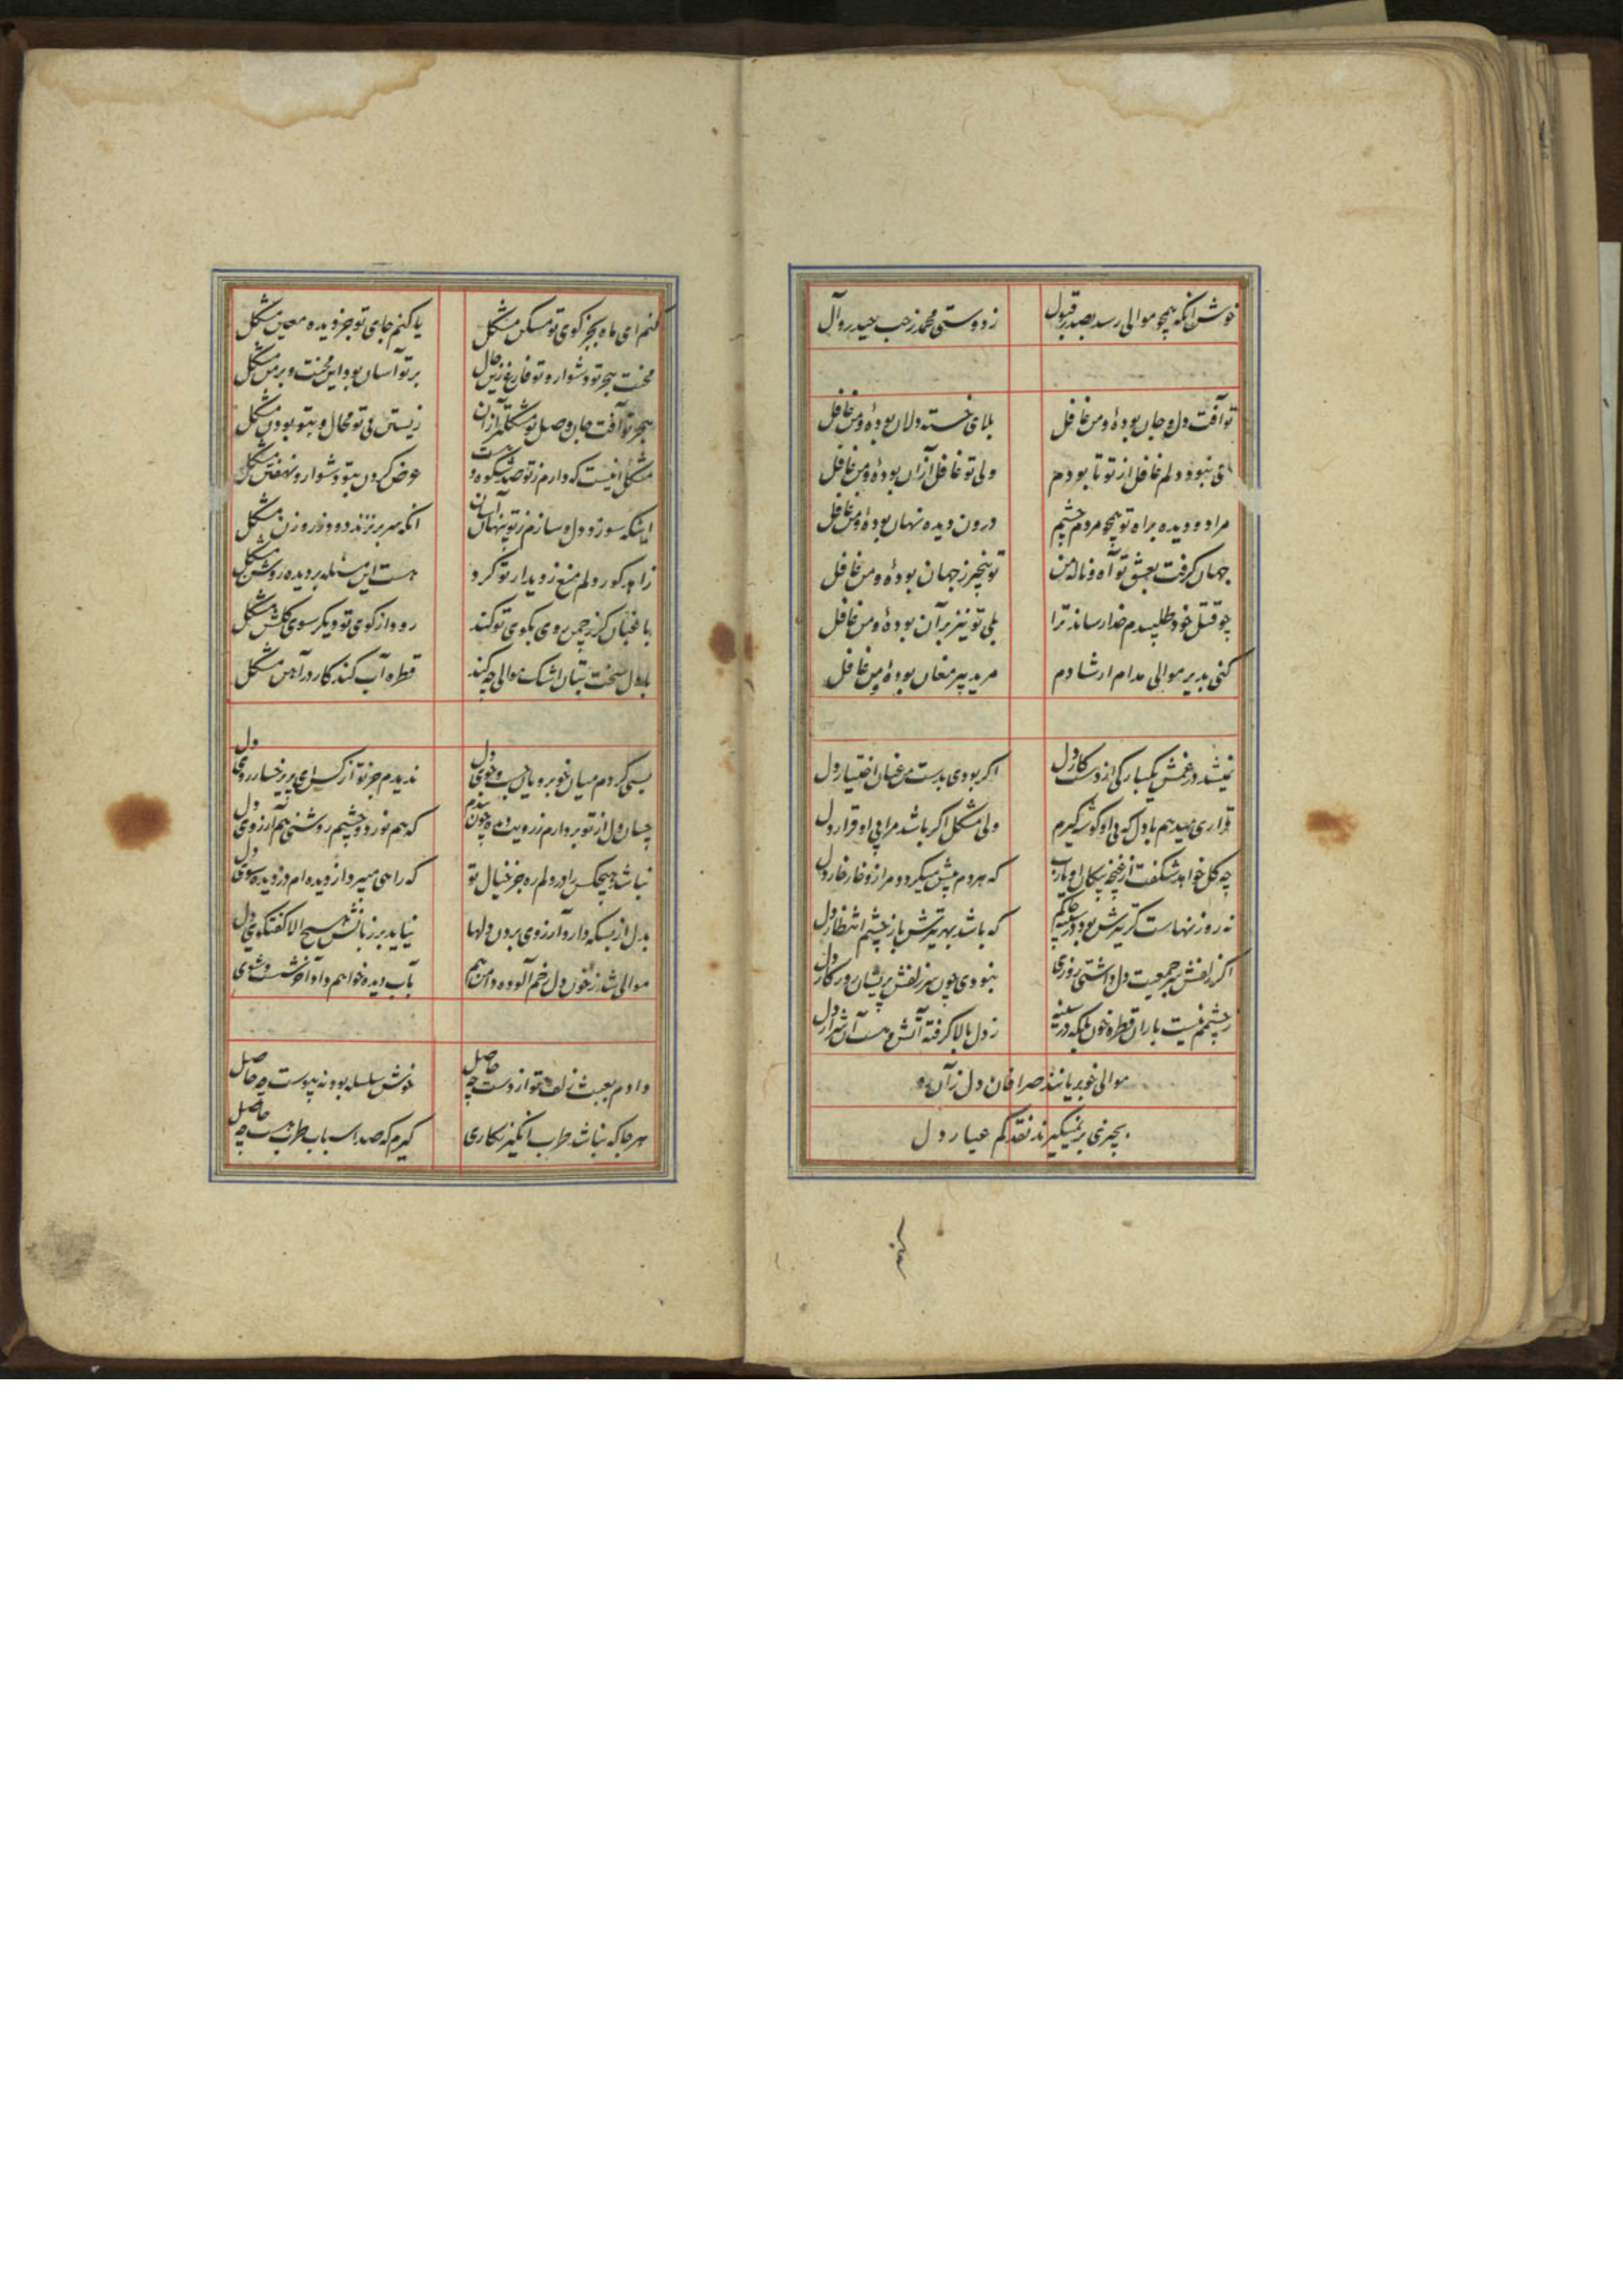 خوش آنکه همچو موالی رسد بصدر قبول
ز دوستی محمد ز حب حیدر و آل
تو آفت دل و جان بودهٔ و من غافل
بلای خسته دلان بودهٔ و من غافل
دمی نبود دلم غافل از تو تا بودم
ولی تو غافل ازان بودهٔ و من غافل
مرا دو دیده براه تو همچو مردم چشم
درون دیده نهان بودهٔ و من غافل
جهان گرفت بعشق تو آه و نالهٔ من
تو بیخبر ز جهان بودهٔ و من غافل
چو قتل خود طلبیدم خدا رساند ترا
بلی تو نیز بر آن بودهٔ و من غافل
کنی بدیر موالی مدام ارشادم
مرید پیر مغان بودهٔ و من غافل
نمیشد در غمش یکبارگی از دست کار دل
اگر بودی بدست من عنان اختیار دل
قراری میدهم با دل که بی او گوشه گیرم
ولی مشکل اگر باشد مرا بی او قرار دل
چه گل خواهد شکفت از غنچه پیکان او یارب
که هردم بیش میگردد مرا زو خار خار دل
نه روزنهاست کز تیرش بود در سینه چاکم
که باشد بهر تیرش باز چشم انتظار دل
اگر زلفش سر جمعیت دل داشتی روزی
نبودی چون سر زلفش پریشان روزگار دل
ز چشمم نیست باران قطره خون بلکه در سینه
ز دل بالا گرفته آتش و هست آن شرار دل
موالی خوبرویانند صرافان دل زان رو
بچیزی برنمیگیرند نقد کم عیار دل
کنم ای ماه بجز کوی تو مسکن مشکل
یا کنم جای تو جز دیده معین مشکل
محنت هجر تو دشوار و تو فارغ زین حال
بر تو آسان بود این محنت و بر من مشکل
هجر تو آفت جان وصل تو مشکلتر از آن
زیستن بی تو محال و بتو بودن مشکل
مشکل اینست که دارم ز تو صد شکوه و هست
عرض کردن بتو دشوار و نهفتن مشکل
اینکه سوز دل و سازم ز تو پنهان آسان
آنکه سر بر نزند دود ز روزن مشکل
زاهد کور دلم منع ز دیدار تو کرد
هست این مسئله بر دیده روشن مشکل
باغبان گر ز چمن روی بکوی تو کند
رود از کوی تو دیگر سوی گلشن مشکل
با دل سخت بتان اشک موالی چه کند
قطره آب کند کار در آهن مشکل
بسی گردم میان خوبرویان بجست و جوی دل
ندیدم جز تو از کس ای پریرخسار روی دل
چسان دل از تو بردارم ز رویت دیده چون بندم
که هم نور دو چشم روشنی هم آرزوی دل
نباشد هیچکس را در دلم ره جز خیال تو
که راهی میبرد از دیده ام دزدیده سوی دل
بدل از بسکه دارد آرزوی بردن دلها
نیاید بر زبانش هیچ الا گفتگوی دل
موالی شد ز خون دل زخم آلوده دامن هم
بآب دیده خواهم داد آخر شست و شوی
دادم بعبث زلف تو از دست چه حاصل
خوش سلسله بود نه پیوست چه حاصل
هر جا که نباشد طرب انگیز نگاری
گیرم که صد اسباب طرب هست چه حاصل